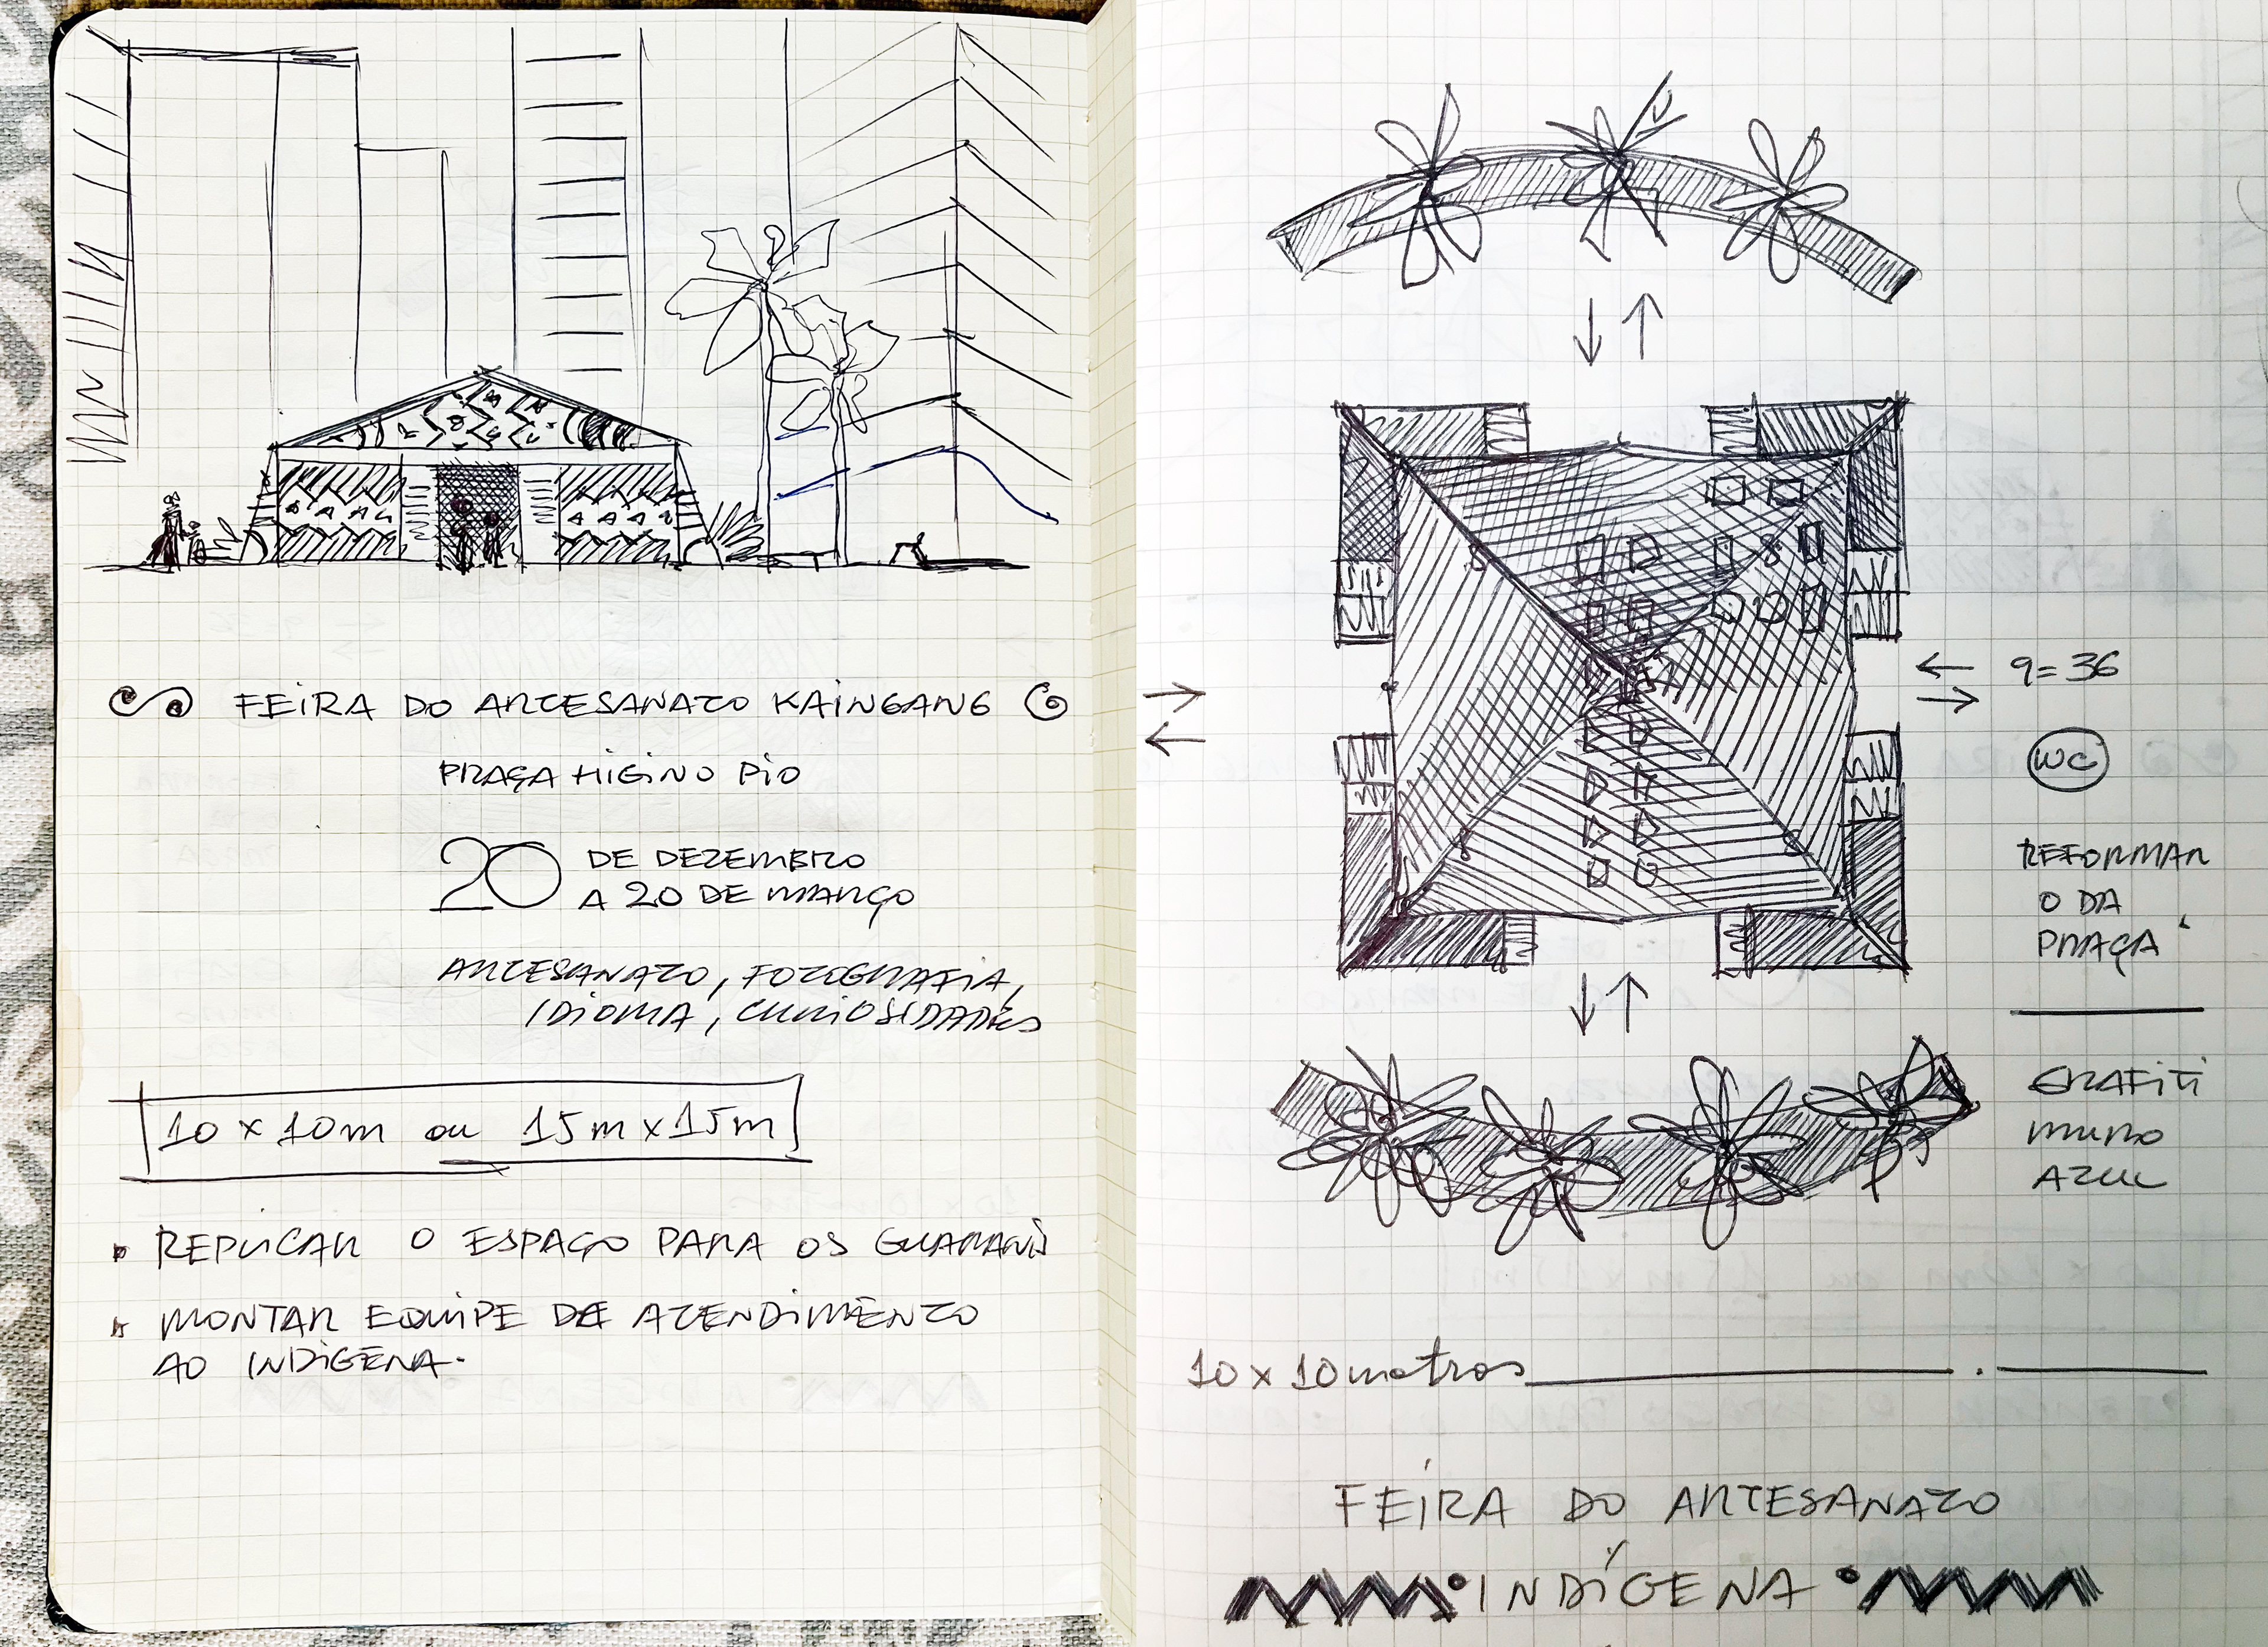 FEIRA DO ARTESANATO KAINGANG
PRAÇA HIGINO PIO
20 DE DEZEMBRO
A 20 DE MARÇO
ARTESANATO, FOTOGRAFIA,
IDIOMA, CURIOSIDADES
10 x 10m ou 15m x 15m
REPLICAR O ESPAÇO PARA OS GUARANIS
MONTAR EQUIPE DE ATENDIMENTO
AO INDÍGENA.
9=36
WC
REFORMAR
O DA
PRAÇA
GRAFITI
MURO
AZUL
10 x 10 metros
FEIRA DO ARTESANATO
INDÍGENA